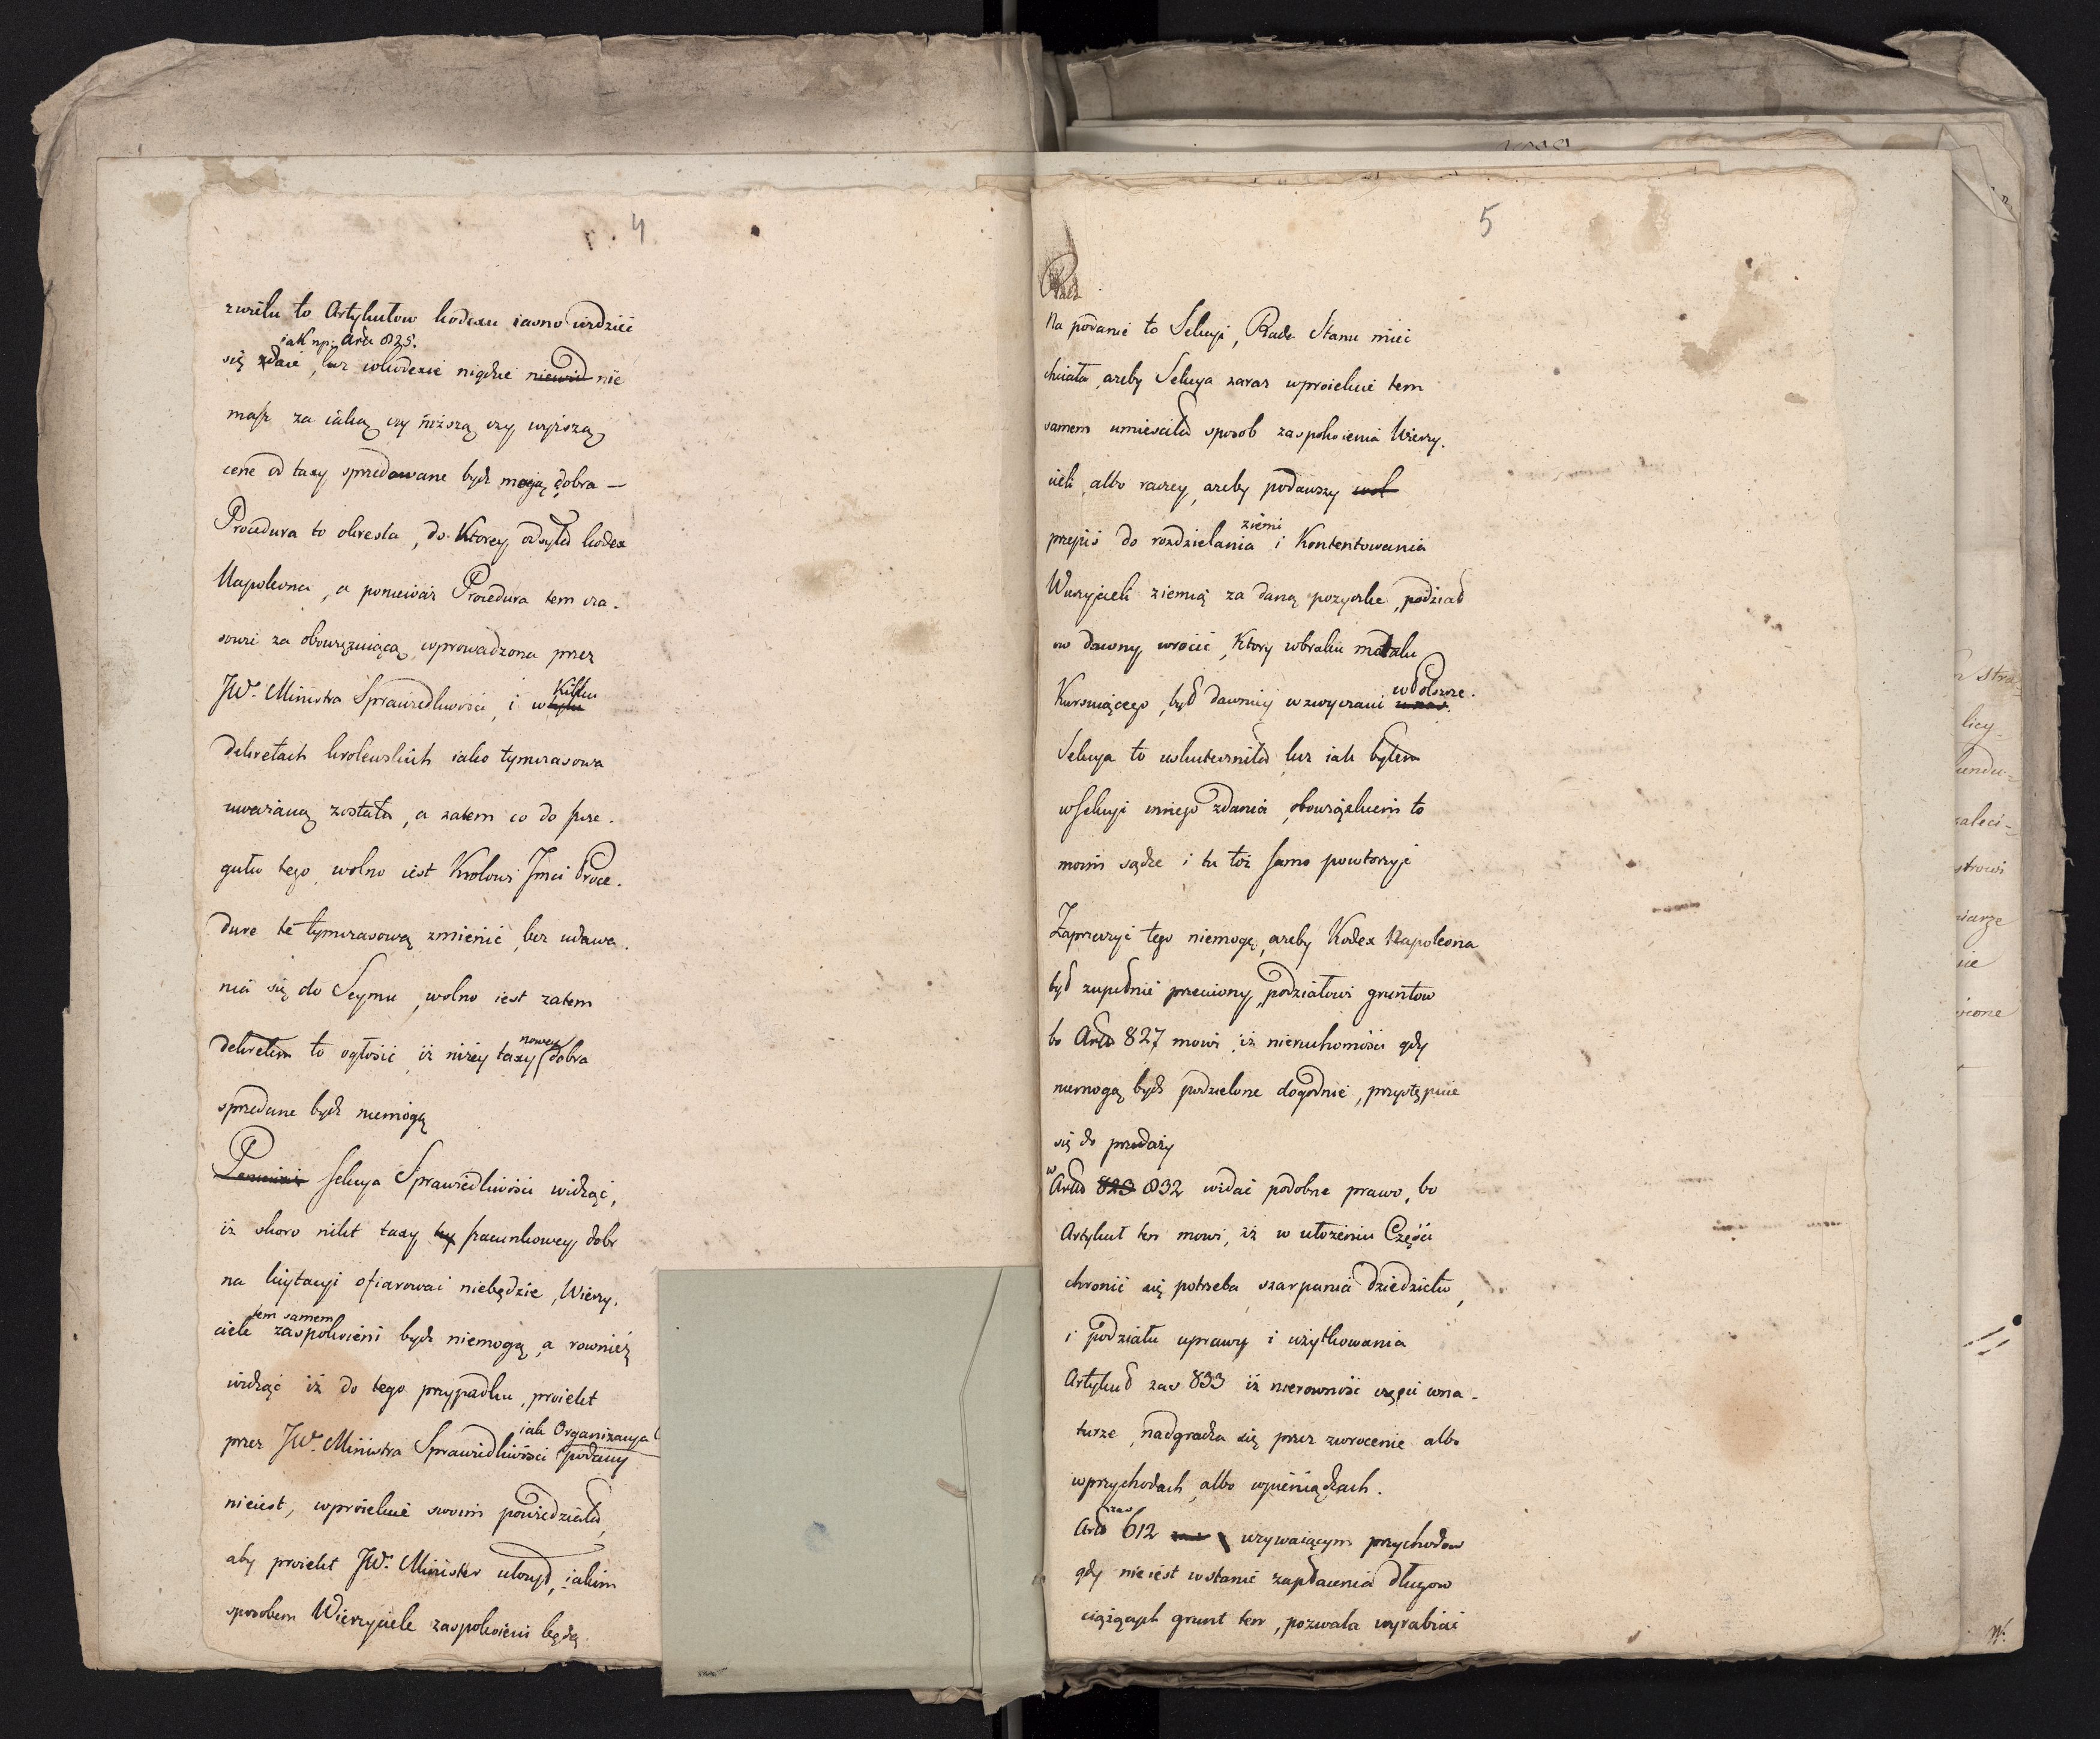 4
zwielu to Artykułow kodexu iasno widzieć
iak np: Artł 825.
się zdaie, lecz wkodexie nigdzie niewid nie
masz za iaką czy niższą czy wyższą
cene od taxy spredawane bydź mają dobra —
Procedura to okresla, do Ktorey odsyła kodex
Napoleona, a ponieważ Procedura tem cza.
sowie za obowięzuiącą wprowadzona przez
JW. Ministra Sprawiedliwości, i w kilku
dekretach krolewskich iako tymczasowa
uważaną została, a zatem co do szcze.
gułu tego wolno iest Krolowi Jmci Proce.
dure te tymczasową zmienić bez udawa.
nia się do Seymu, wolno iest zatem
dekretem to ogłosić iż niżey taxy nowey dobra
spredane bydź niemogą
Ponieważ Sekcya Sprawiedliwości widząc,
iż skoro nikt taxy szacunkowey dobr
na licytacyi ofiarować niebędzie, Wierzy.
ciele tem samem zaspokoieni bydź niemogą, a rownież
widząc iż do tego przypadku, proiekt
iak Organizacya
przez JW. Ministra Sprawiedliwości podany
nieiest, wproiekcie swoim powiedziała,
aby proiekt JW. Minister ułożył, iakim
sposobem Wierzyciele zaspokoieni będą
5
Na podanie to Sekcyi, Rada Stanu mieć
chciała, ażeby Sekcya zaraz wproiekcie tem
samem umiesciła sposob zaspokoienia Wierzy.
cieli, albo raczey, ażeby podawszy
przepis do rozdzielania ziemi i Kontentowania
Wierzycieli ziemią za daną pozyczke, podział
ow dawny wrocić, Ktory wbraku metalu
Kursuiącego, był dawniey wzwyczaiu wPolszcze.
Sekcya to uskuteczniła lecz iak byłem
wSekcyi innego zdania, obowiązkiem to
moim sądze i tu toż samo powtorzyć
Zaprzeczyć tego niemogę, ażeby Kodex Napoleona
był zupełnie przeciwny podziałowi gruntow
bo Artł 827 mowi, iż nieruchomości gdy
niemogą bydź podzielone dogodnie, przystępuie
się do przedaży
w Artł 823 832 widać podobne prawo, bo
Artykuł ten mowi, iż w ułożeniu Części
chronić się potrzeba szarpania dziedzictw,
i podziału uprawy i użytkowania
Artykuł zaś 833 iż nierowność części wna-
turze, nadgradza się przez zwrocenie albo
wprzychodach, albo wpieniądzach.
Artł zaś 612 używaiącym przychodow
gdy nieiest wstanie zapłacenia długow
ciążących grunt ten, pozwala wyrabiać